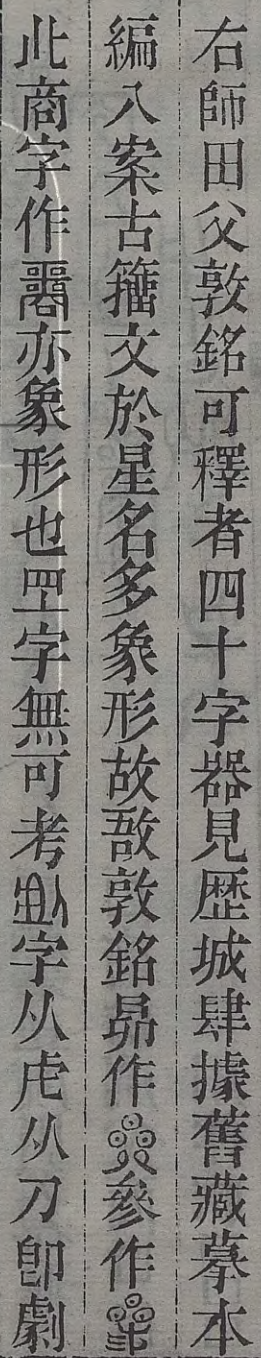 右師田父敦銘可釋者四十字器見歷城肆據舊藏摹本
編入案古籀文於星名多象形故敔敦銘昴作參作
此商字作亦象形也字無可考字从虍从刀卽劇